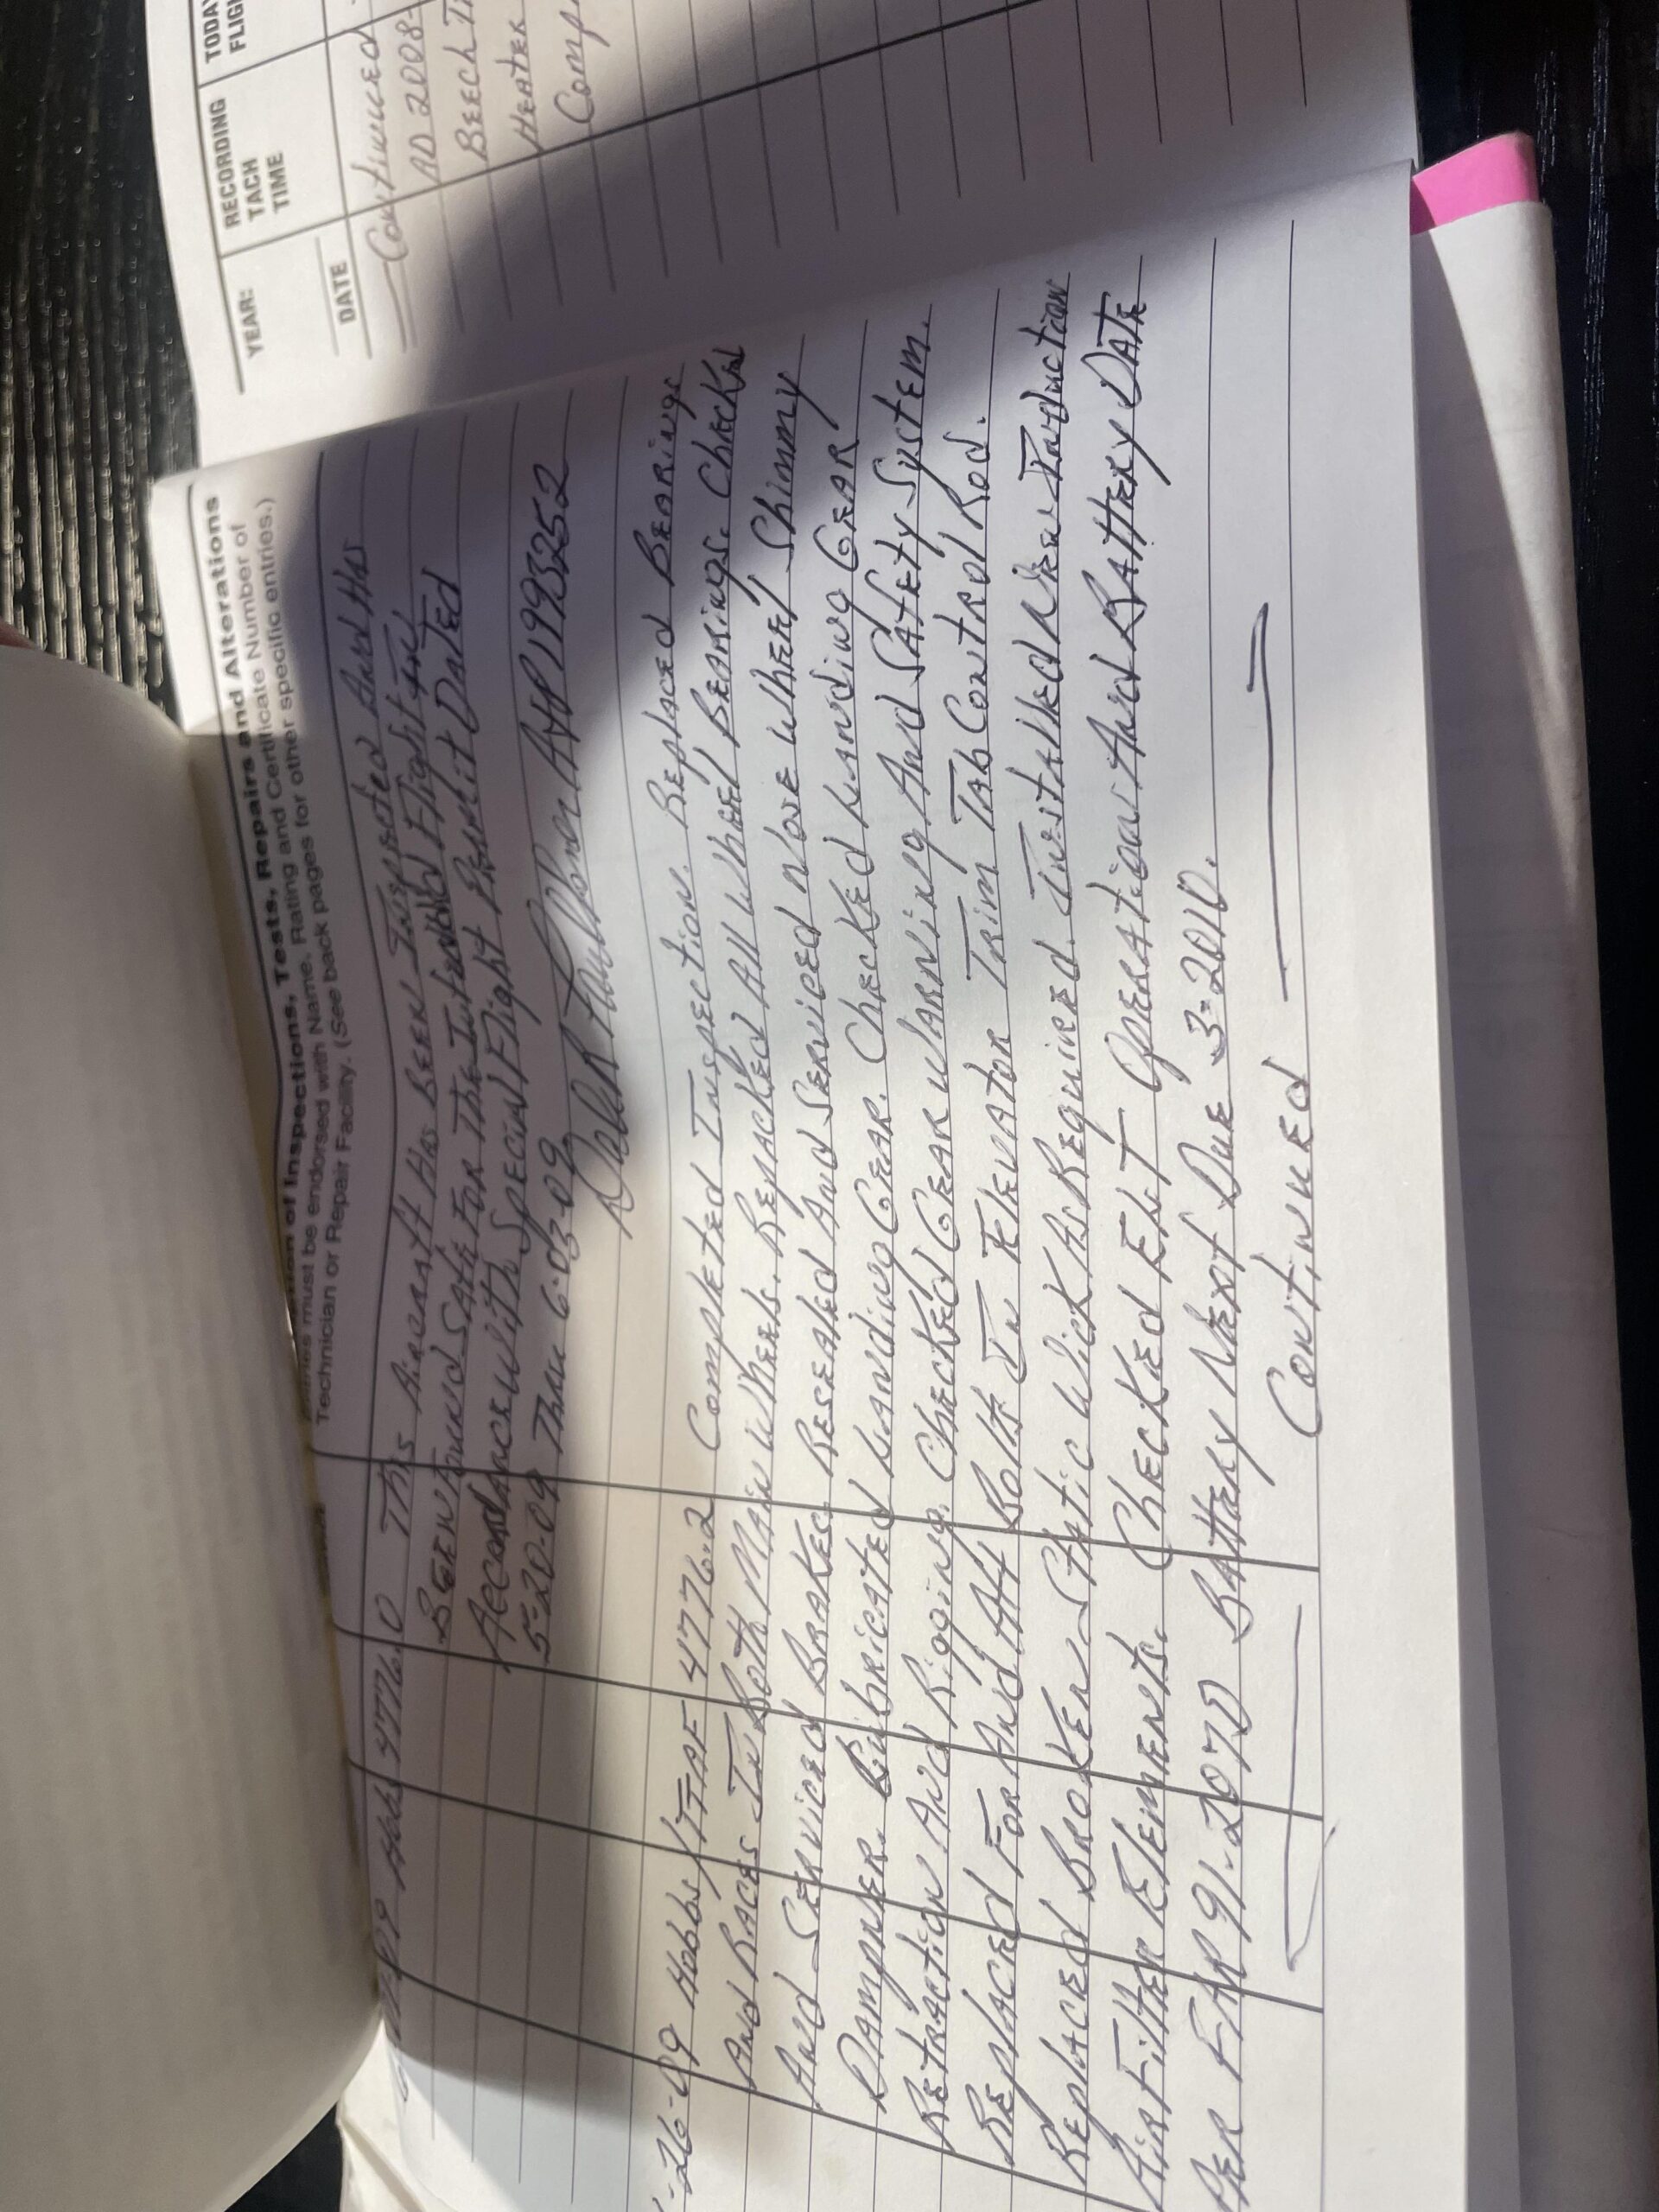 of Inspections, Tests, Repairs and Alterations
must be endorsed with Name, Rating and Certificate Number of
Technician or Repair Facility. (See back pages for other specific entries.)
Hobbs 4776.0 This Aircraft Has Been Inspected And Has
Been Found Safe For The Intended Flight In
Accordance With Special Flight Permit Dated
5-20-09 Thru 6-03-09
A&P 1993252
-26-09 Hobbs/TTAF 4776.2 Completed Inspection. Replaced Bearings
And Races In Both Main Wheels. Repacked All Wheel Bearings. Checked
And Serviced Brakes. Resealed And Serviced Nose Wheel Shimmy
Dampner. Lubricated Landing Gear. Checked Landing Gear
Retraction And Rigging. Checked Gear Warning And Safety System.
Replaced For And Aft Bolts In Elevator Trim Tab Control Rod.
Replaced Broken Static Wick As Required. Installed New Induction
Air Filter Elements. Checked ELT Operation And Battery Date
Per FAR 91-207D Battery Next Due 3-2010.
Continued
YEAR:
RECORDING
TACH
TIME
TODAY
FLIGH
DATE
Continued
AD 2008-
Beech T
Heater
Comp